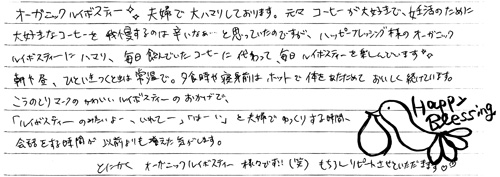 オーガニックルイボスティー 夫婦で大ハマりしております。元々コーヒーが大好きで、妊活のために
大好きなコーヒーを我慢するのは辛いなぁ…と思っていたのですが、ハッピーブレッシング様のオーガニック
ルイボスティーにハマり、毎日飲んでいたコーヒーに代わって毎日ルイボスティーを楽しんでいます
朝や昼、ひといきつくときは常温で。夕食時や寝る前はホットで体をあたためておいしく続けています。
こうのとりマークのかわいいルイボスティーのおかげで、
「ルイボスティーのみたいよー、いれてー」「はーい」と夫婦でゆっくりする時間、
会話をする時間が以前よりも増えた気がします。
とにかくオーガニックルイボスティー様々です!!(笑) もちろんリピートさせていただきます
Happy
Blessing